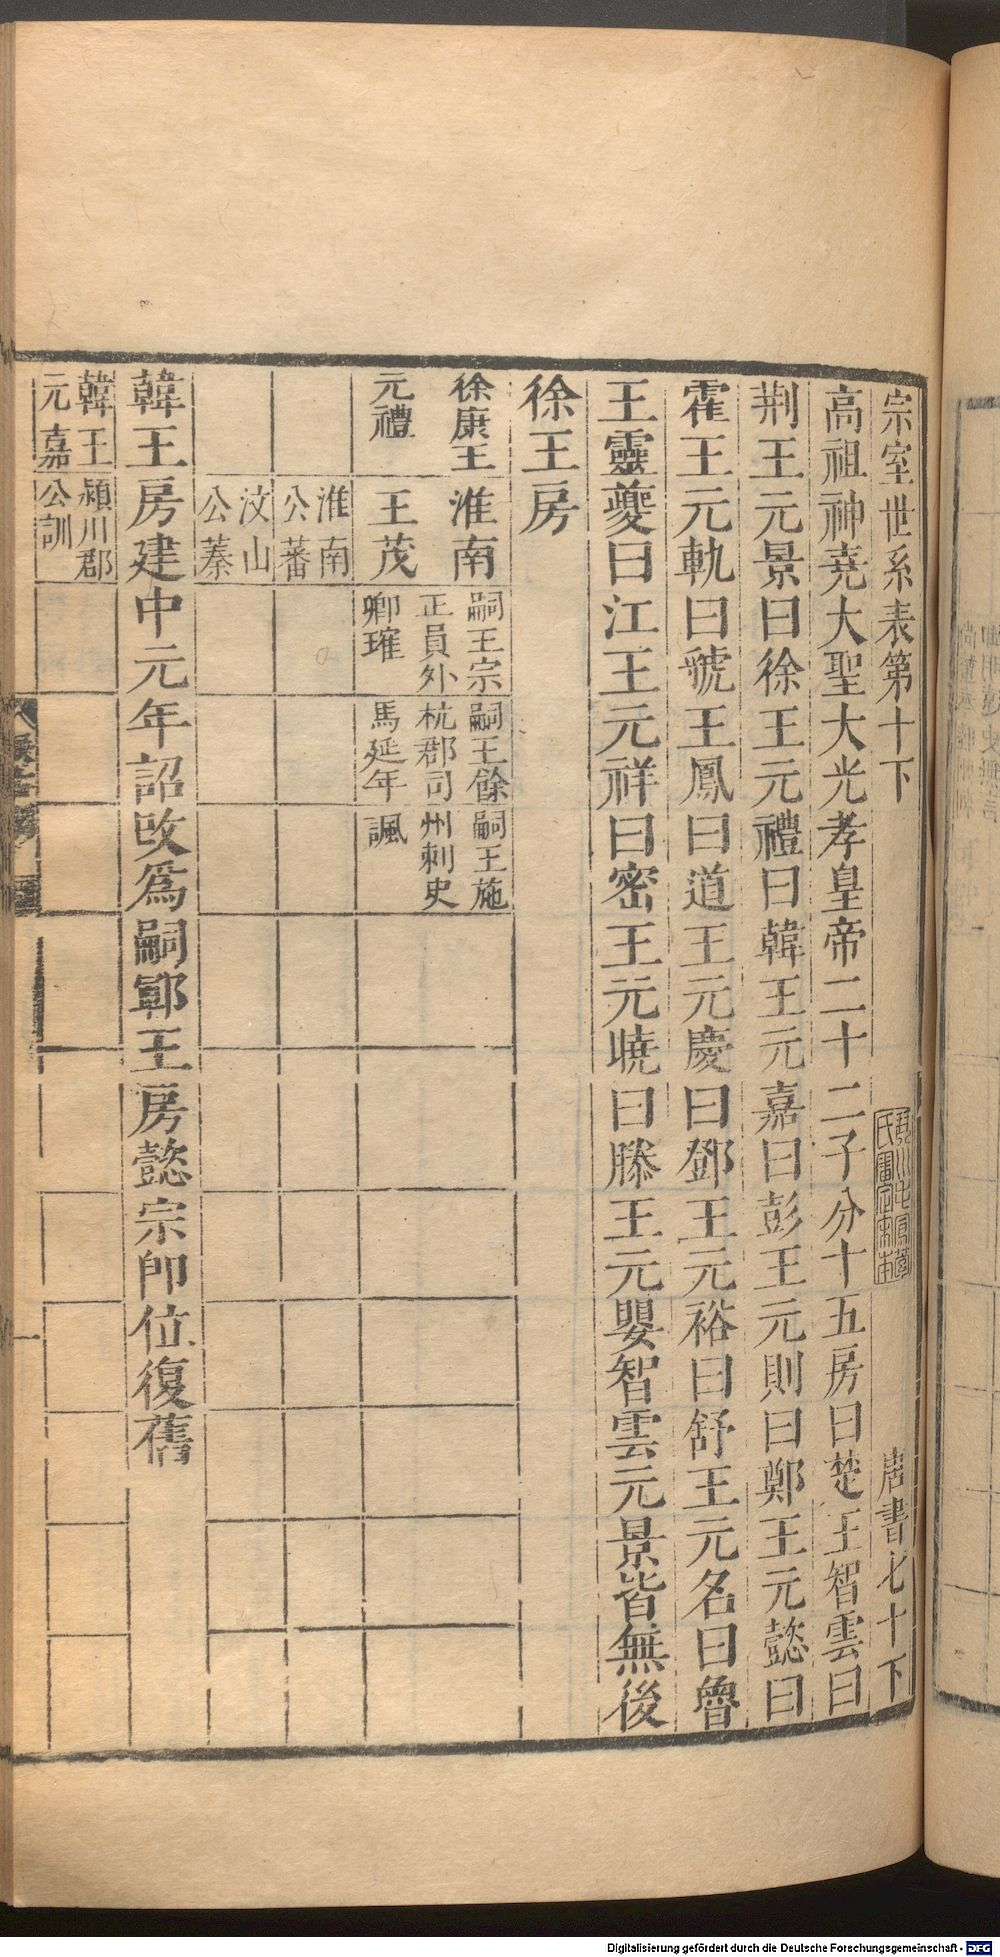 宗室世系表第十下
唐書七十下
高祖神堯大聖大光孝皇帝二十二子分十五房曰楚王智雲曰
荆王元景曰徐王元禮曰韓王元嘉曰彭王元則曰鄭王元懿曰
霍王元軌曰虢王鳳曰道王元慶曰鄧王元裕曰舒王元名曰魯
王靈夔曰江王元祥曰密王元曉曰滕王元嬰智雲元景皆無後
徐王房
徐康王
元禮
淮南
王茂
嗣王宗
正員外
卿璀
嗣王餘
杭郡司
馬延年
嗣王施
州刺史
諷
淮南
公蕃
汶山
公蓁
韓王房建中元年詔改爲嗣鄆王房懿宗即位復舊
韓王
元嘉
潁川郡
公訓
Digitalisierung gefördert durch die Deutsche Forschungsgemeinschaft - DFG